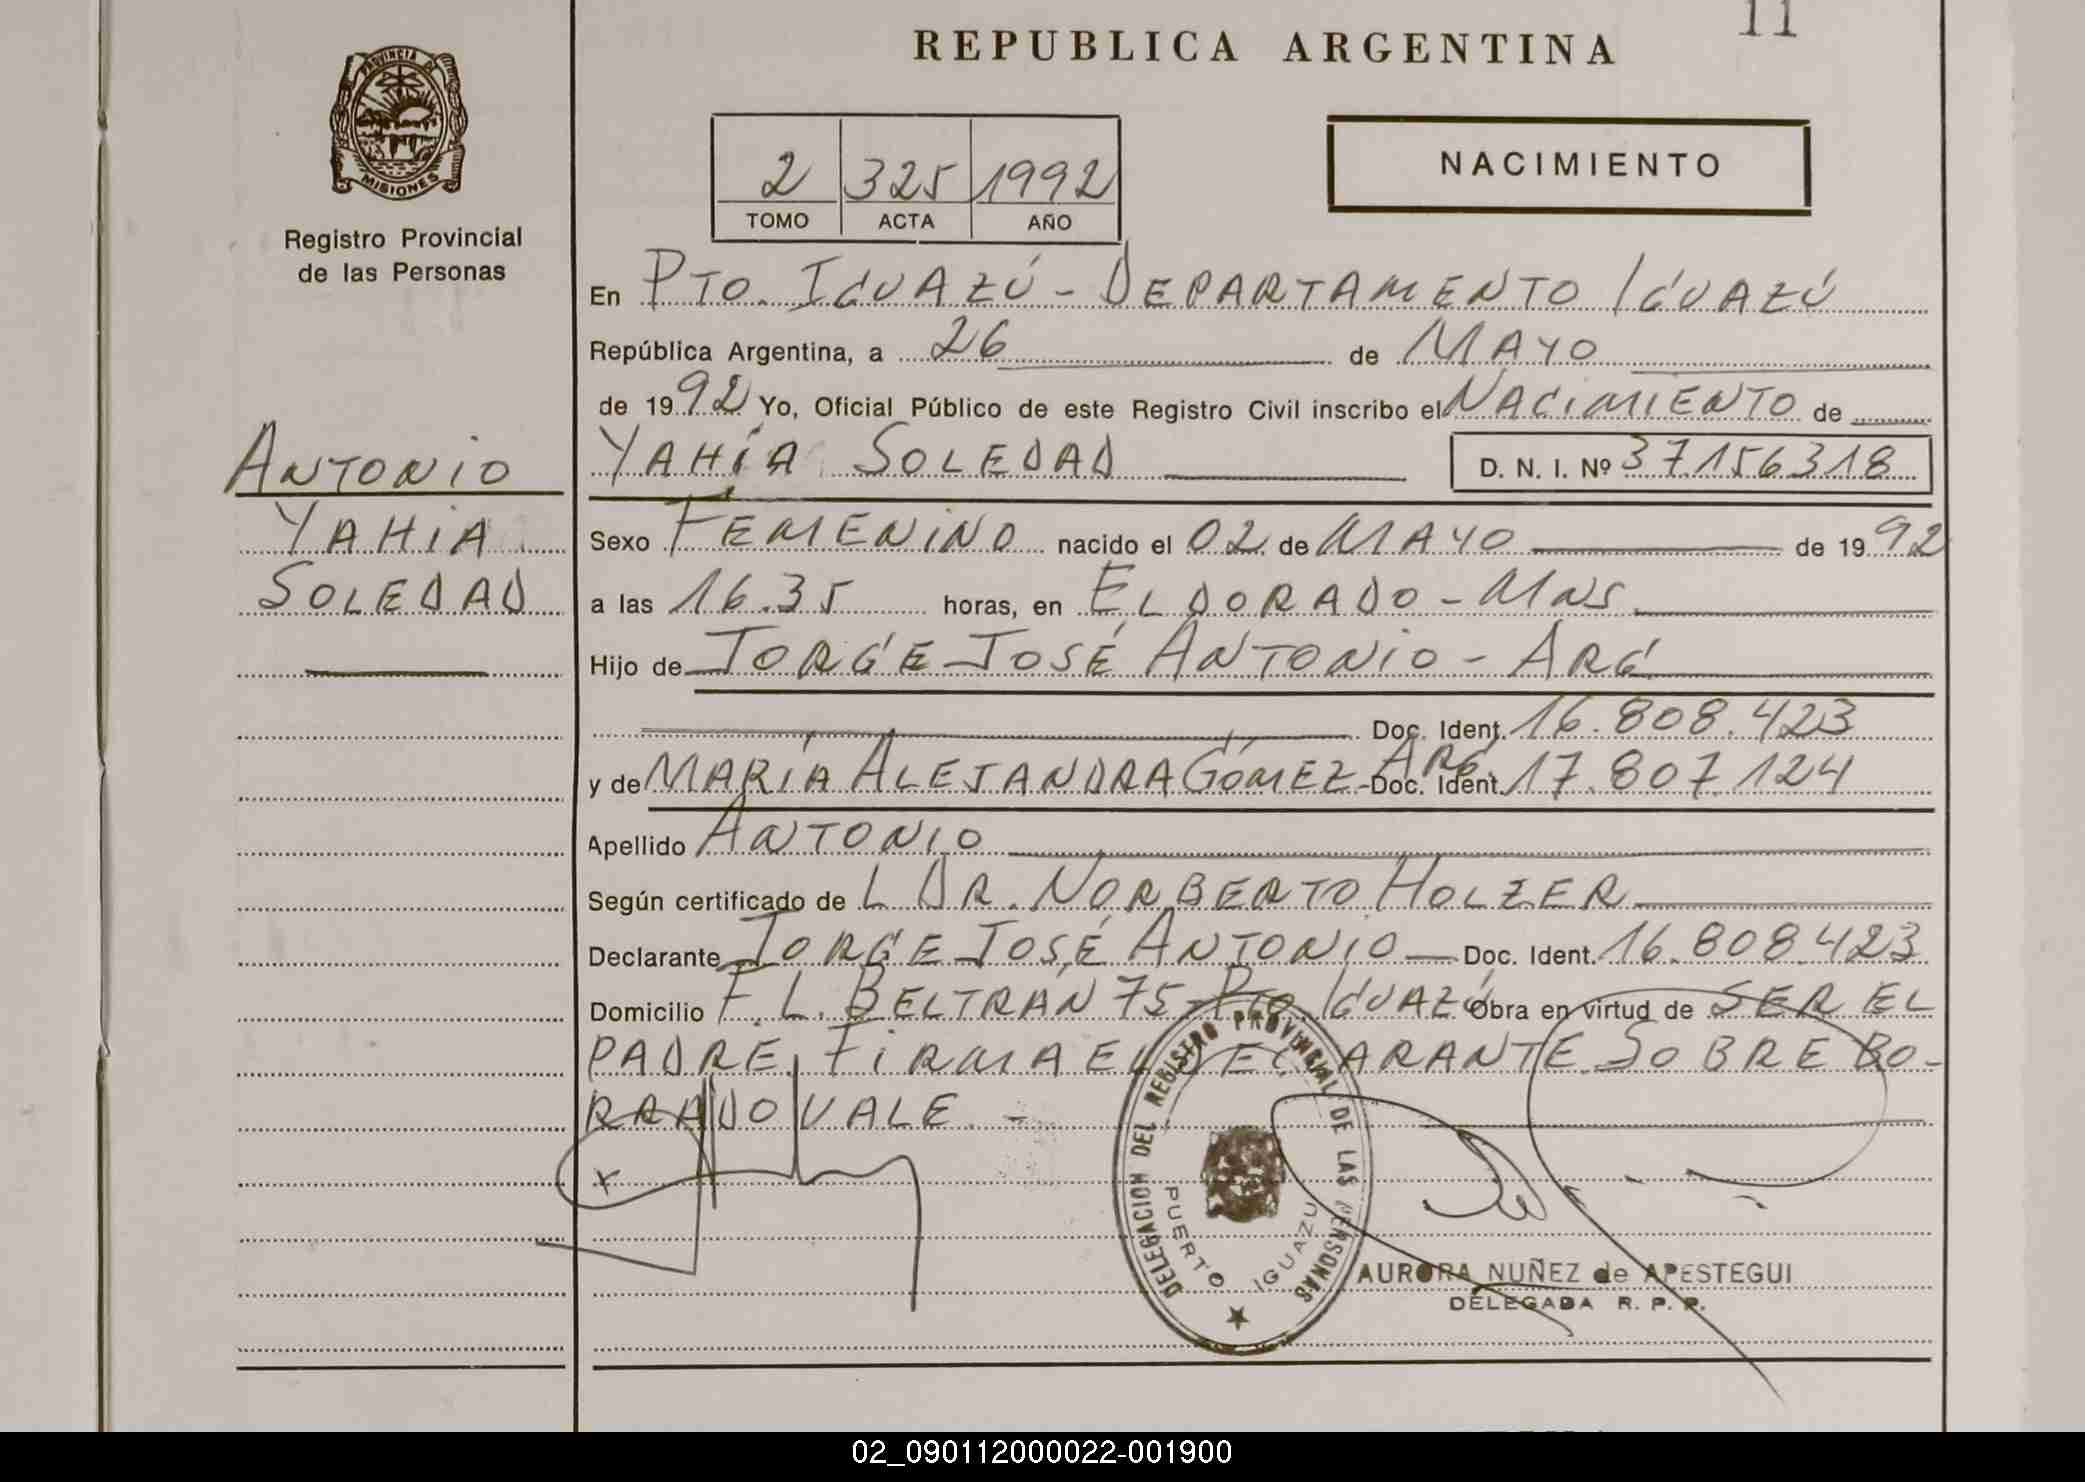 11
REPUBLICA ARGENTINA
PROVINCIA DE
MISIONES
Registro Provincial
de las Personas
2 325 1992
TOMO ACTA AÑO
NACIMIENTO
En PTO. IGUAZÚ - DEPARTAMENTO IGUAZÚ
República Argentina, a 26 de MAYO
de 1992 Yo, Oficial Público de este Registro Civil inscribo el NACIMIENTO de
YAHÍA SOLEDAD D. N. I. Nº 37156318
ANTONIO
YAHIA
SOLEDAD
Sexo FEMENINO nacido el 02 de MAYO de 1992
a las 16.35 horas, en ELDORADO - MNS.
Hijo de JORGE JOSÉ ANTONIO - ARG
Doc. Ident. 16.808.423
y de MARÍA ALEJANDRA GÓMEZ - ARG. Doc. Ident. 17.807.124
Apellido ANTONIO
Según certificado de L DR. NORBERTO HOLZER
Declarante JORGE JOSÉ ANTONIO Doc. Ident. 16.808.423
Domicilio F. L. BELTRÁN 75 - PTO. IGUAZÚ Obra en virtud de SER EL
PADRE. FIRMA EL DECLARANTE. SOBRE BO-
RRADO VALE. -
x
DELEGACION DEL REGISTRO PROVINCIAL DE LAS PERSONAS
PUERTO IGUAZU
AURORA NUÑEZ de APESTEGUI
DELEGADA R. P. P.
02_090112000022-001900